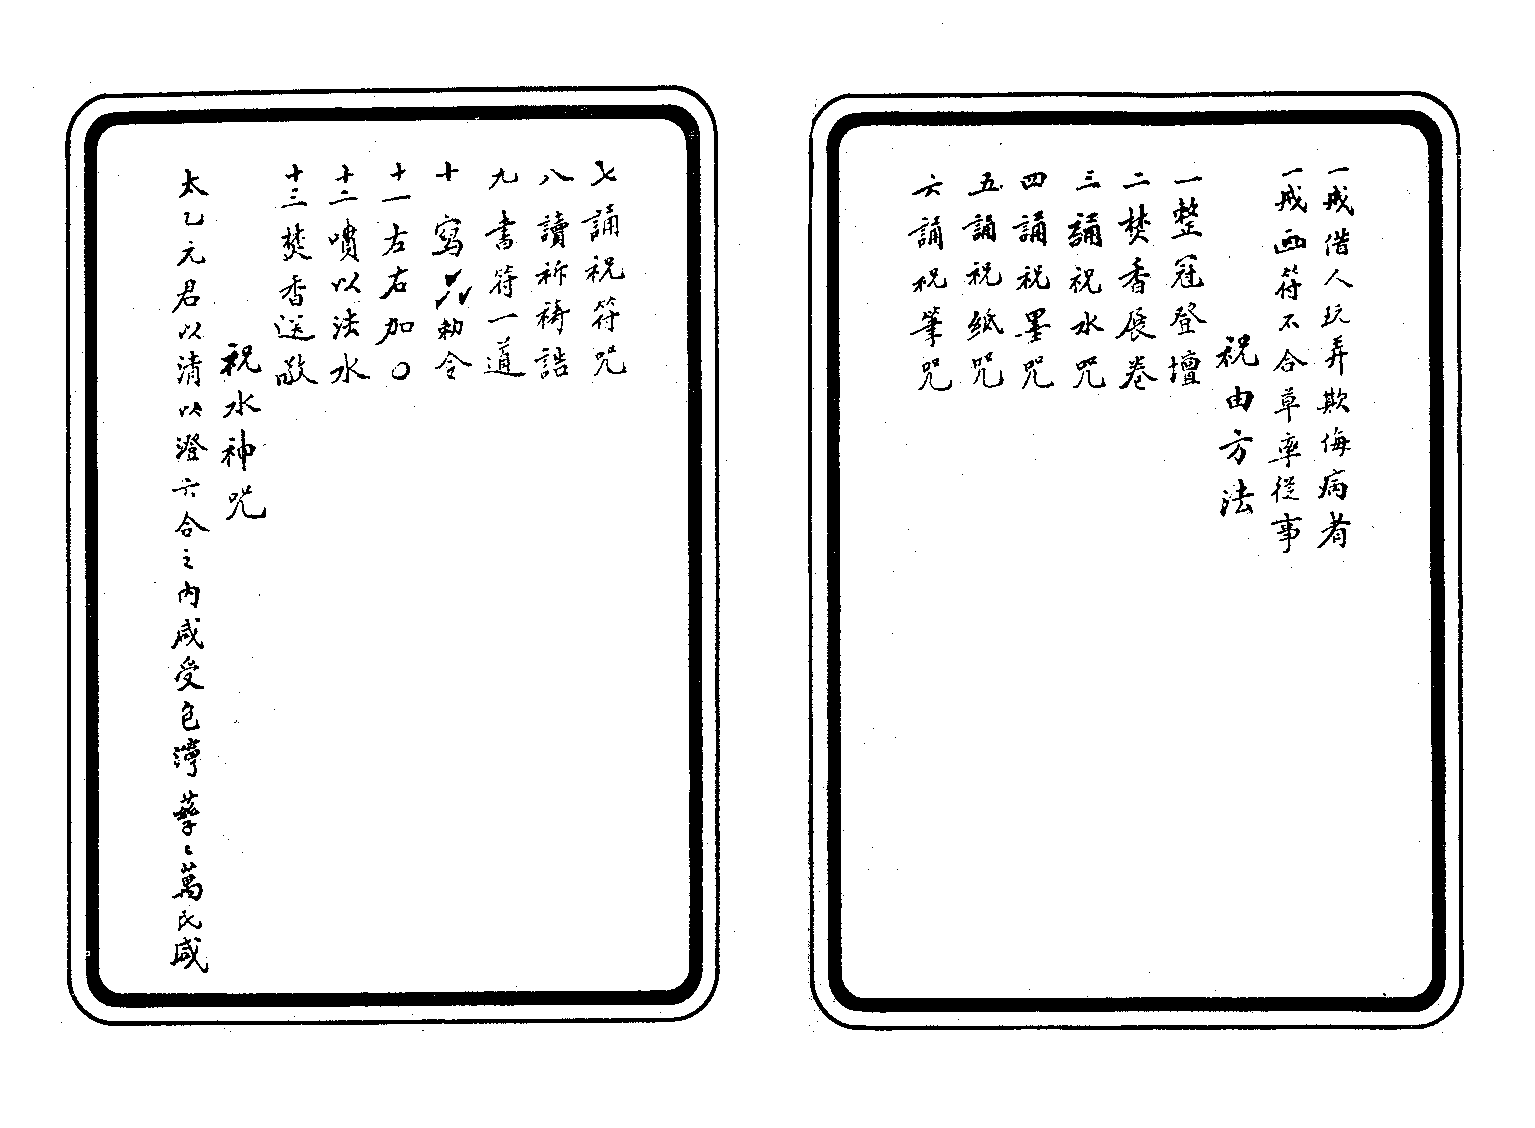 一戒借人玩弄欺侮病者
一戒画符不合草率從事
祝由方法
一整冠登壇
二焚香展卷
三誦祝水咒
四誦祝墨咒
五誦祝紙咒
六誦祝筆咒
七誦祝符咒
八讀祈禱誥
九書符一道
十寫勅令
十一左右加〇
十二噴以法水
十三焚香送敬
祝水神咒
太乙元君以清以澄六合之内咸受色孽〻萬民咸